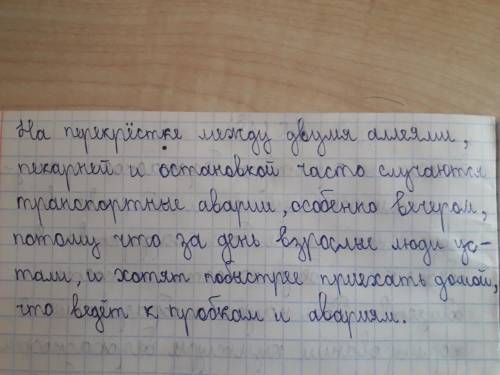 На перекрёстке между двумя аллеями,
пекарней и остановкой часто случаются
транспортные аварии, особенно вечером,
потому что за день взрослые люди ус-
тали, и хотят побыстрее приехать домой,
что ведёт к пробкам и авариям.